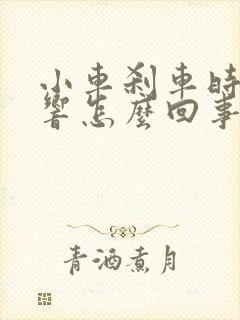 小車剎車時
響怎麼回事
青酒煮月